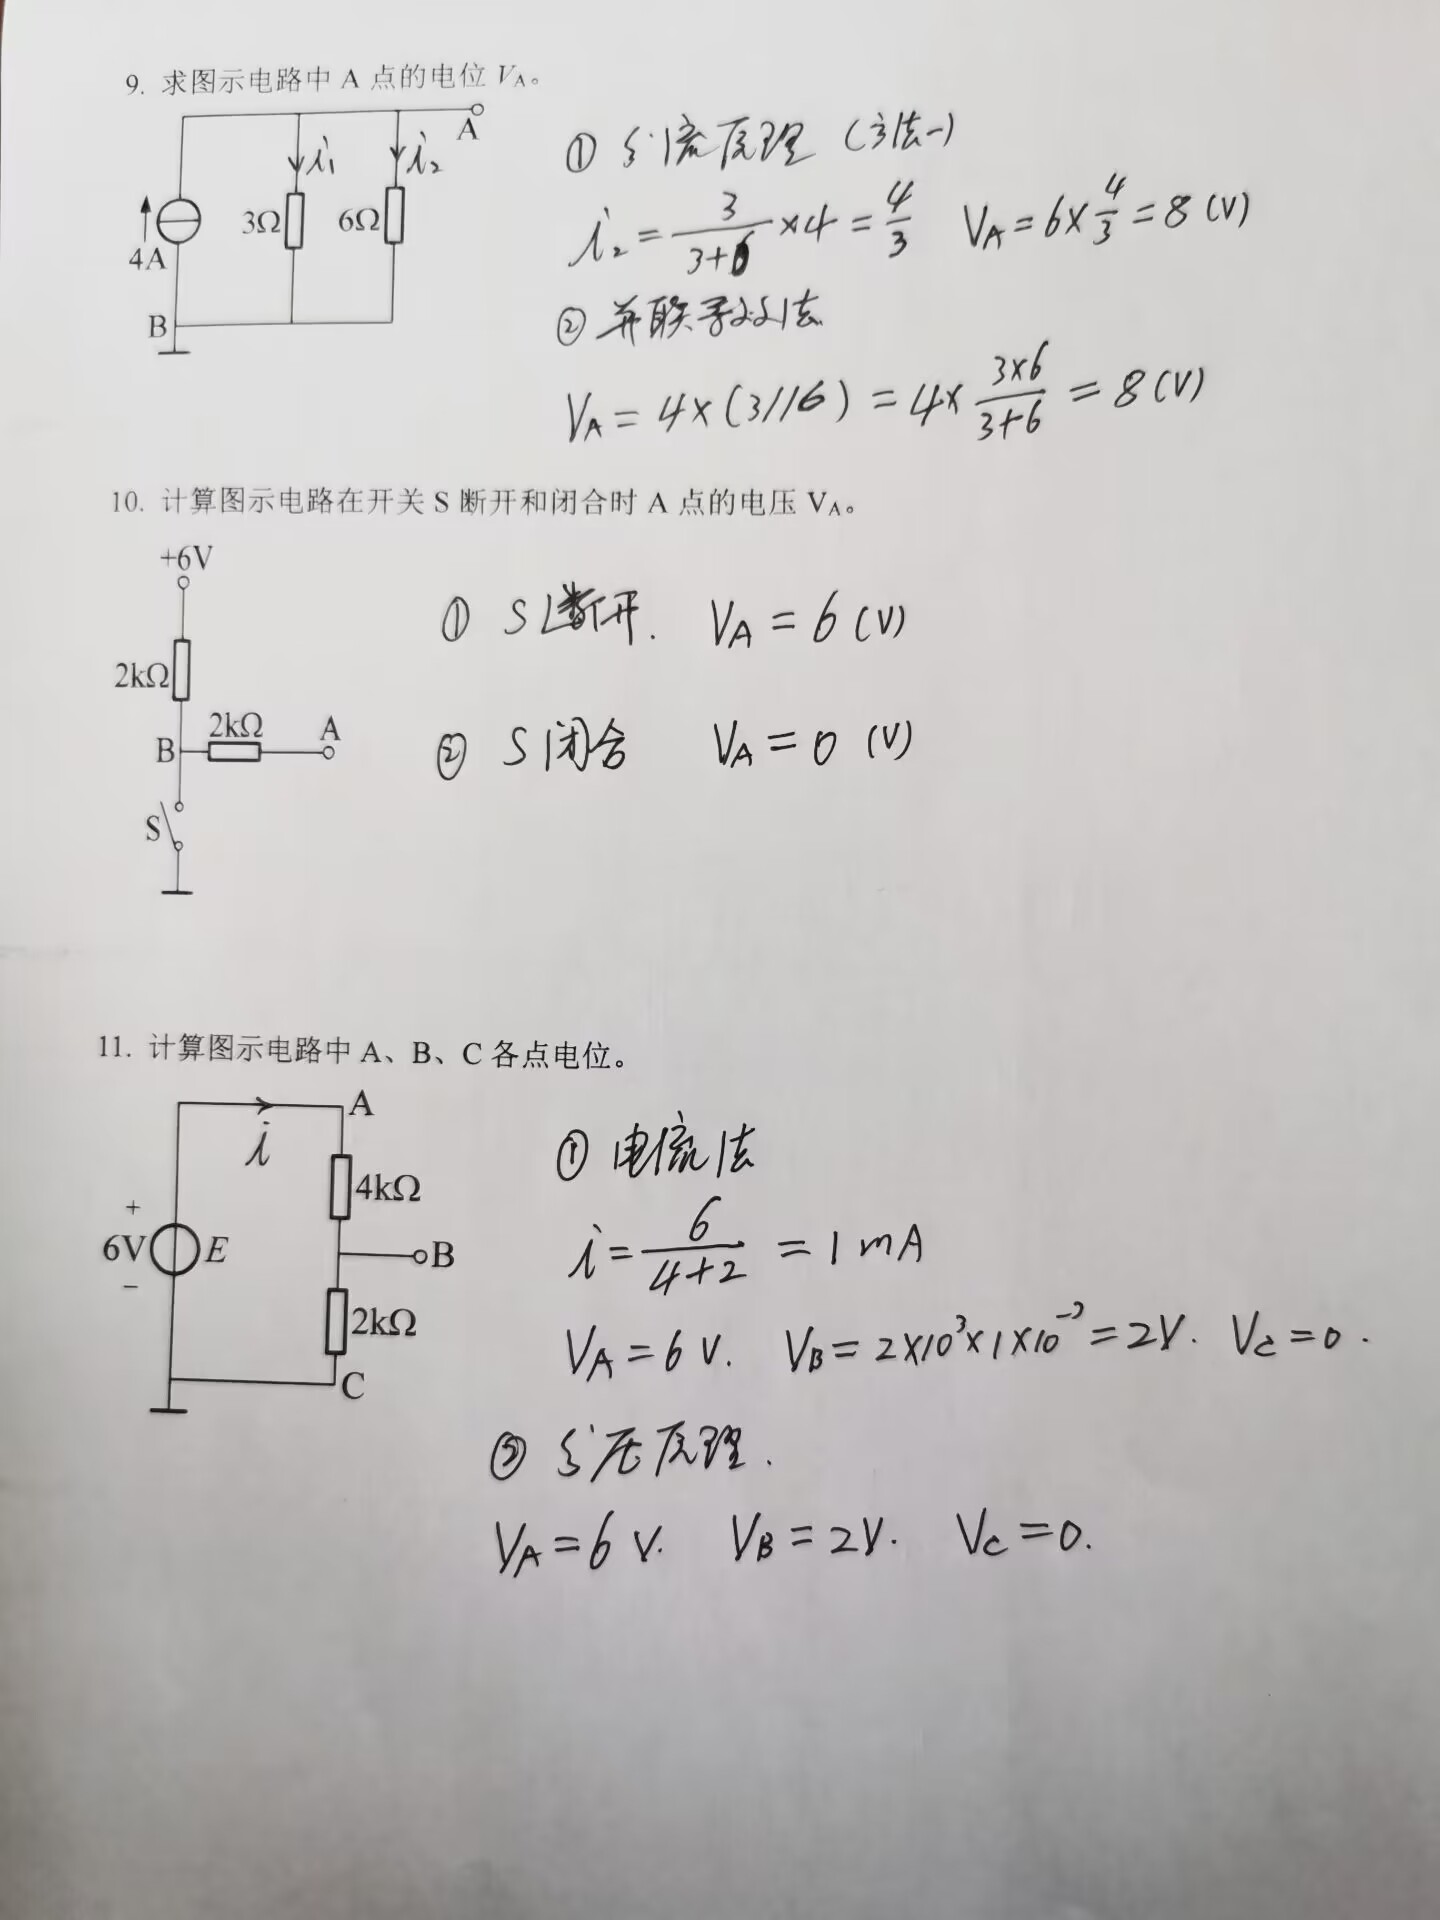 9. 求图示电路中 A 点的电位 VA。
A
i1
i2
3Ω
6Ω
4A
B
① 分流原理 (方法一)
i2 = 3/(3+6) ×4 = 4/3 VA = 6× 4/3 = 8 (V)
② 并联等效法
VA = 4×(3//6) = 4× (3×6)/(3+6) = 8 (V)
10. 计算图示电路在开关 S 断开和闭合时 A 点的电压 VA。
+6V
2kΩ
2kΩ
A
B
S
① S断开. VA = 6 (V)
② S闭合 VA = 0 (V)
11. 计算图示电路中 A、B、C 各点电位。
A
i
4kΩ
+
6V
E
B
−
2kΩ
C
① 电流法
i = 6/(4+2) = 1 mA
VA = 6 V. VB = 2×10³×1×10⁻³ = 2V. VC = 0.
② 分压原理.
VA = 6 V. VB = 2V. VC = 0.